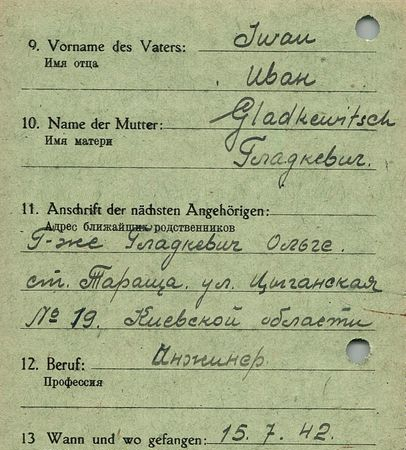 9. Vorname des Vaters: Iwan
Имя отца Иван
10. Name der Mutter: Gladkewitsch
Имя матери Гладкевич.
11. Anschrift der nächsten Angehörigen:
Адрес ближайших родственников
Г-же Гладкевич Ольге.
ст. Тараща. ул. Цыганская
№ 19. Киевской области
12. Beruf: Инжинер
Профессия
13 Wann und wo gefangen: 15. 7. 42.